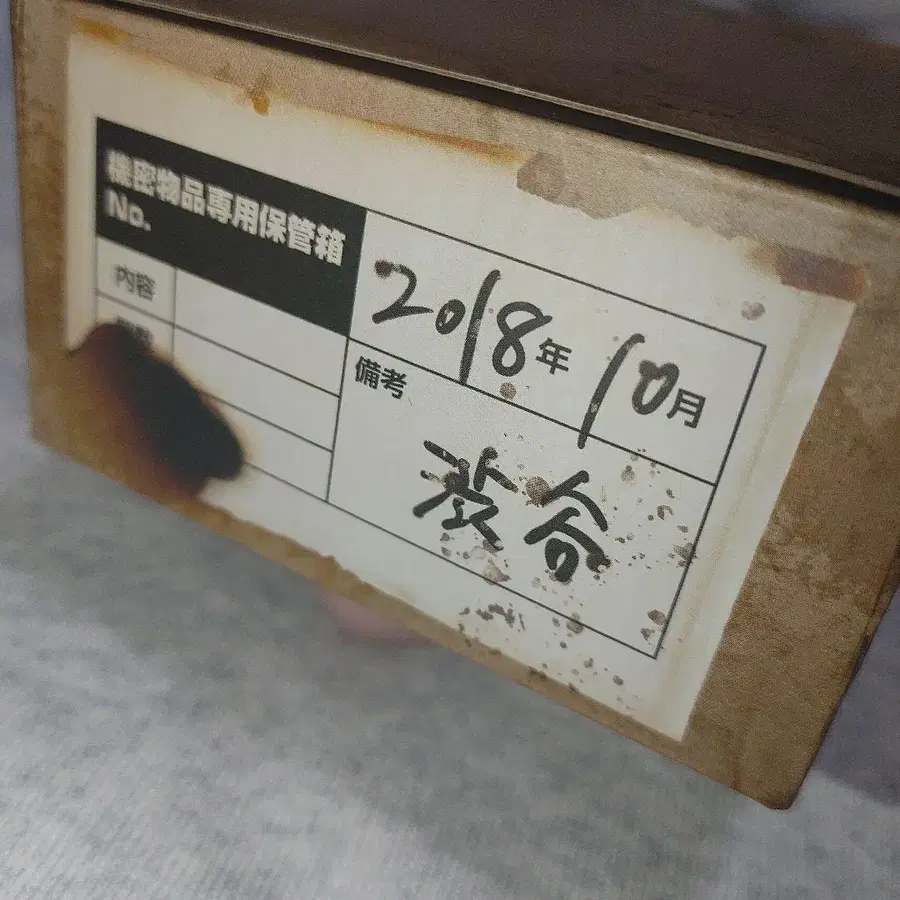 機密物品専用保管箱
No.
2018年 10月
内容
備考
渋谷